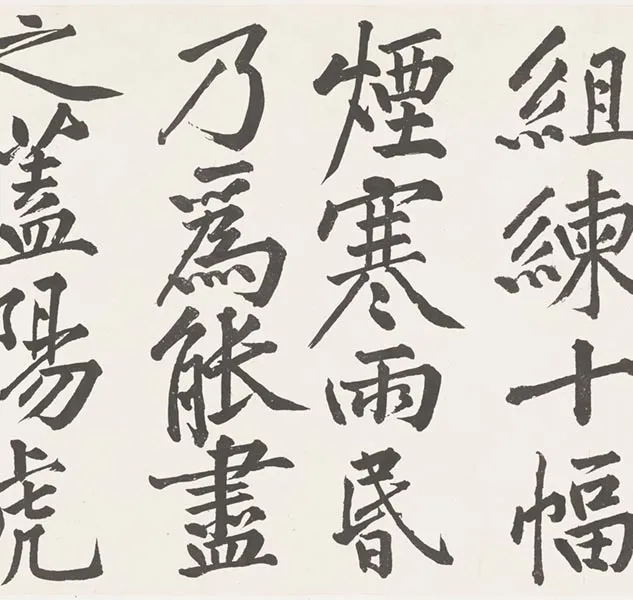 組練十幅
煙寒雨昏
乃為能盡
之蓋陽虎